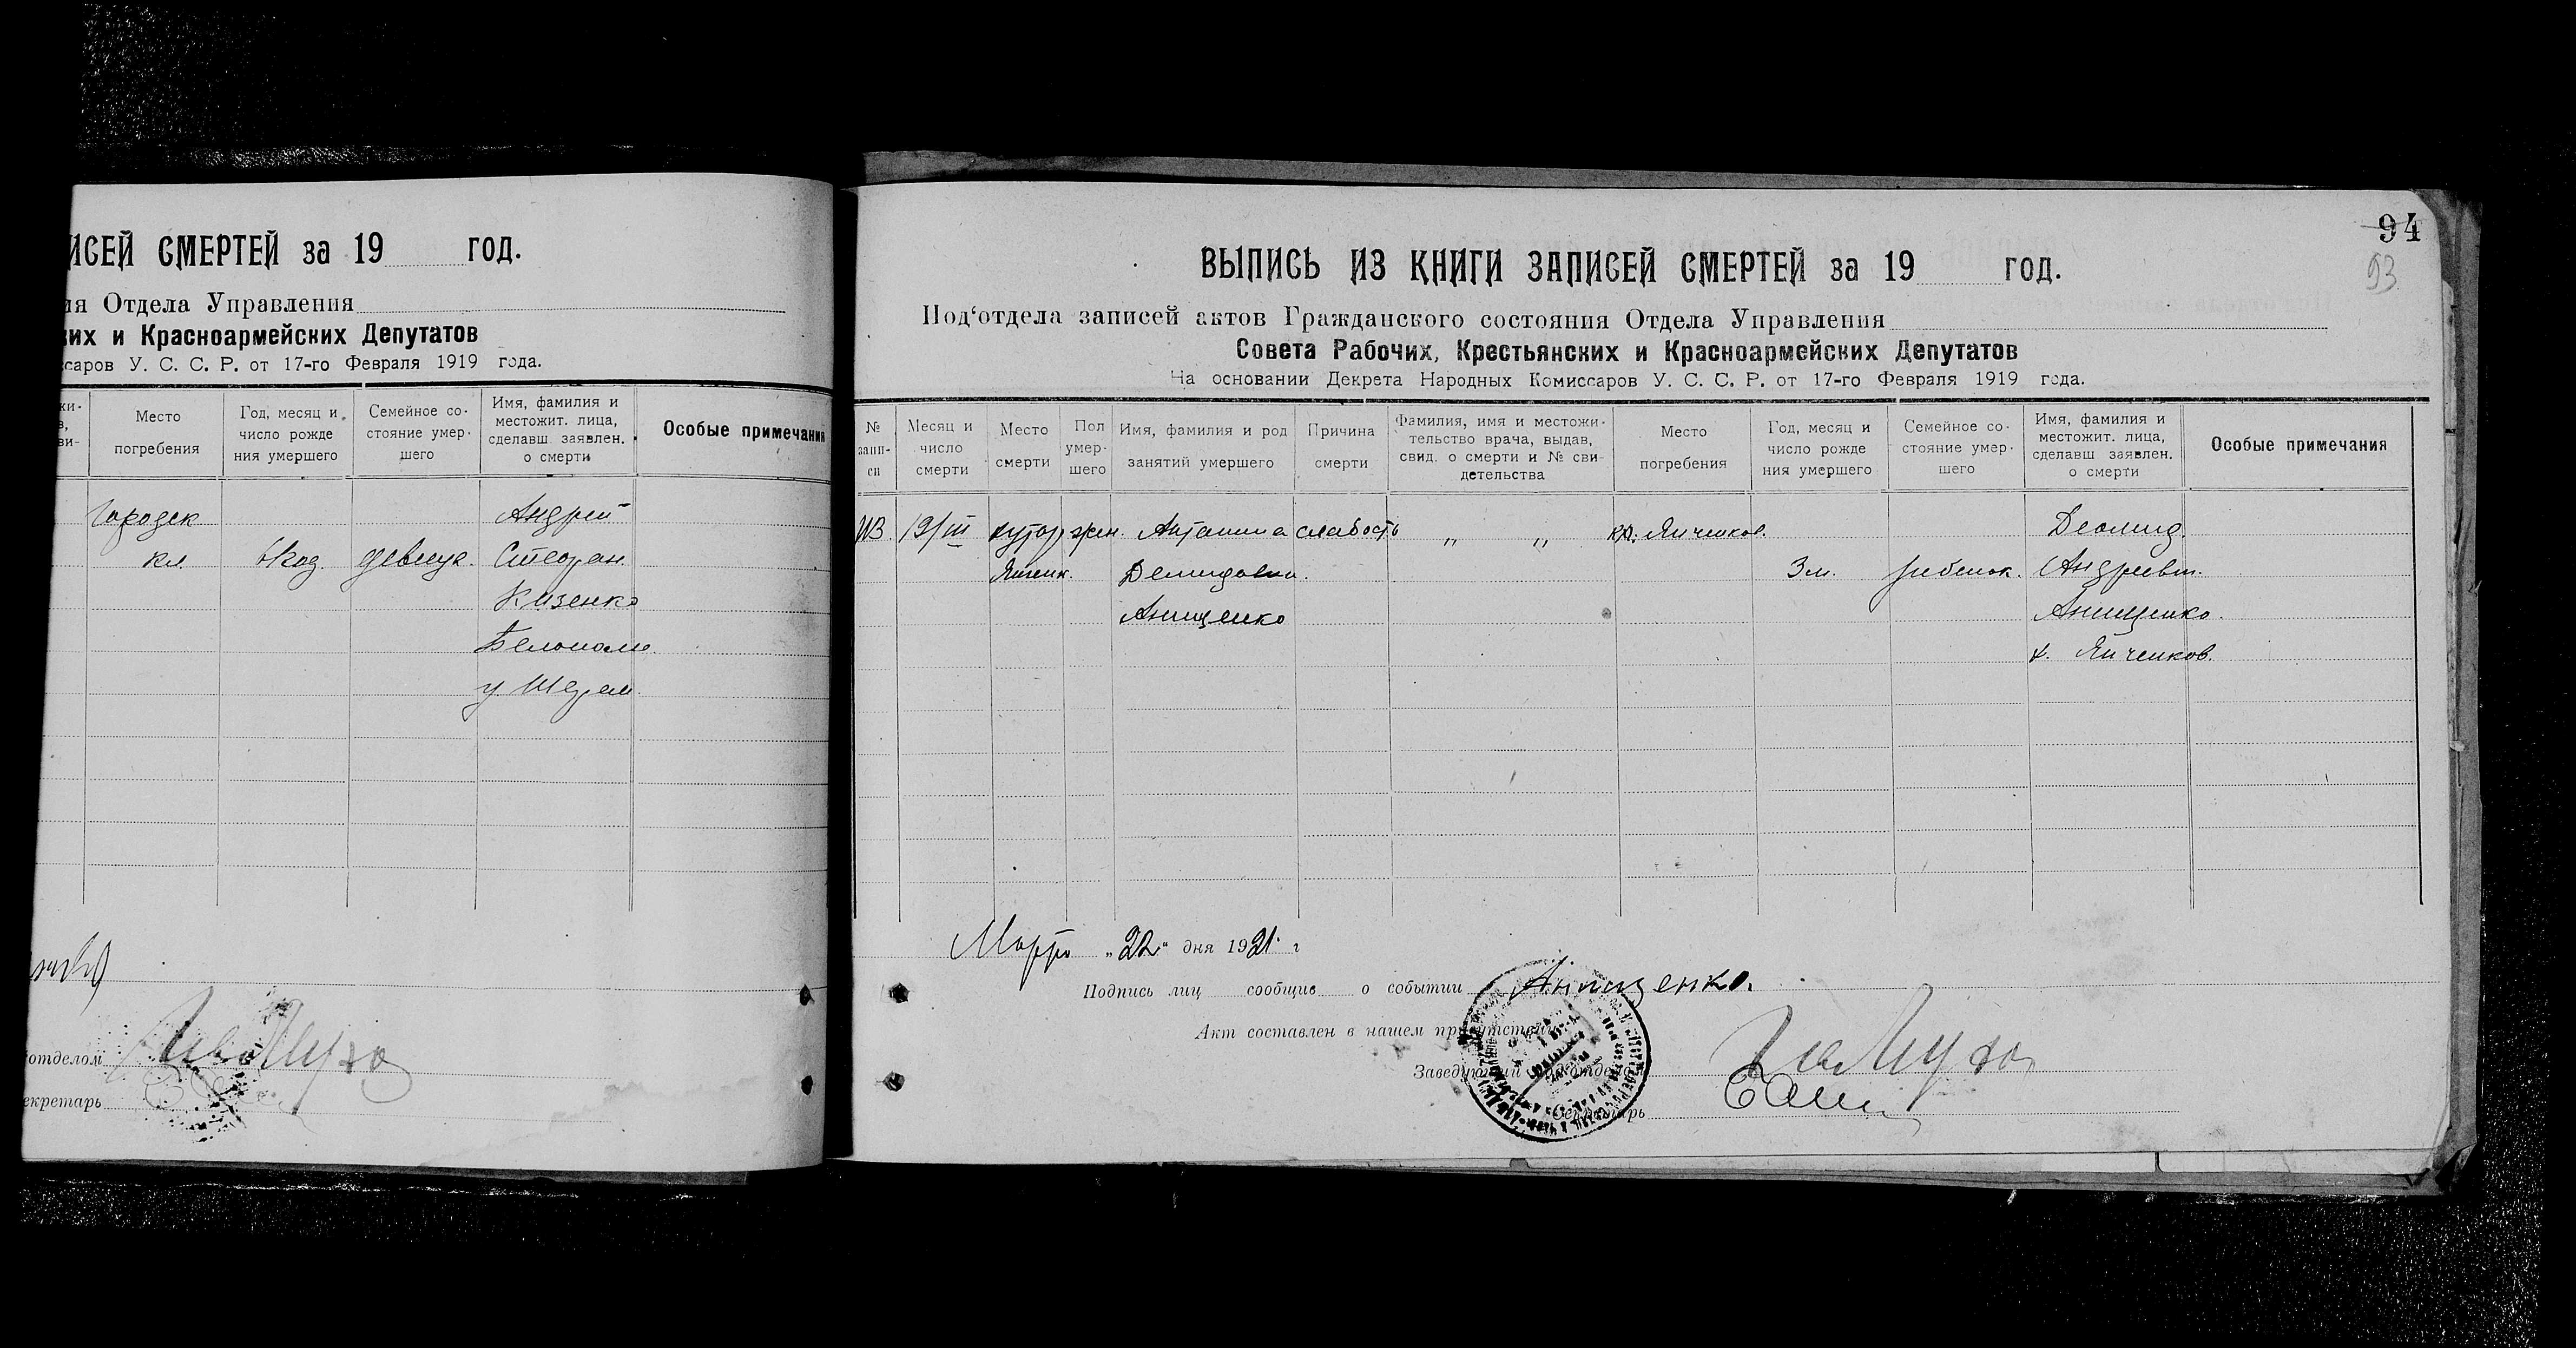 ИСЕЙ СМЕРТЕЙ за 19 год.
ия Отдела Управления
ких и Красноармейских Депутатов
ссаров У. С. С. Р. от 17-го Февраля 1919 года.
ки-
в,
ви-
Место
погребения
Год, месяц и
число рожде
ния умершего
Семейное со-
стояние умер-
шего
Имя, фамилия и
местожит. лица,
сделавш. заявлен.
о смерти
Особые примечания
Городск
кл.
девица.
Андрей
Стефан.
Кизенко
у
отделом
екретарь
94
93
ВЫПИСЬ ИЗ КНИГИ ЗАПИСЕЙ СМЕРТЕЙ за 19 год.
Под‘отдела записей актов Гражданского состояния Отдела Управления
Совета Рабочих, Крестьянских и Красноармейских Депутатов
На основании Декрета Народных Комиссаров У. С. С. Р. от 17-го Февраля 1919 года.
№
запи-
си
Месяц и
число
смерти
Место
смерти
Пол
умер-
шего
Имя, фамилия и род
занятий умершего
Причина
смерти
Фамилия, имя и местожи-
тельство врача, выдав,
свид. о смерти и № сви-
детельства
Место
погребения
Год, месяц и
число рожде
ния умершего
Семейное со-
стояние умер-
шего
Имя, фамилия и
местожит. лица,
сделавш заявлен.
о смерти
Особые примечания
19/III хутор жен. Антонина слабость „ „ Янченков. Деомид
Янченк. Демидовна. 3 м. ребенок. Андреев.
Анищенко Анищенко.
х. Янченков.
Марта „22“ дня 1921 г
Подпись лиц сообщив о событии Анищенко.
Акт составлен в нашем присутствии
Заведующий Подотделом
Секретарь